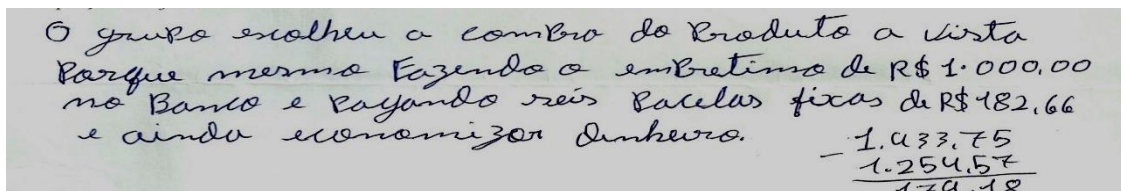 O grupo escolheu a compra do Produto a vista
Porque mesmo Fazendo o empretimo de R$ 1.000,00
no Banco e Pagando seis Pacelas fixas de R$ 182,66
e ainda economizar dinheiro.
- 1.433,75
1.254,57
179,18